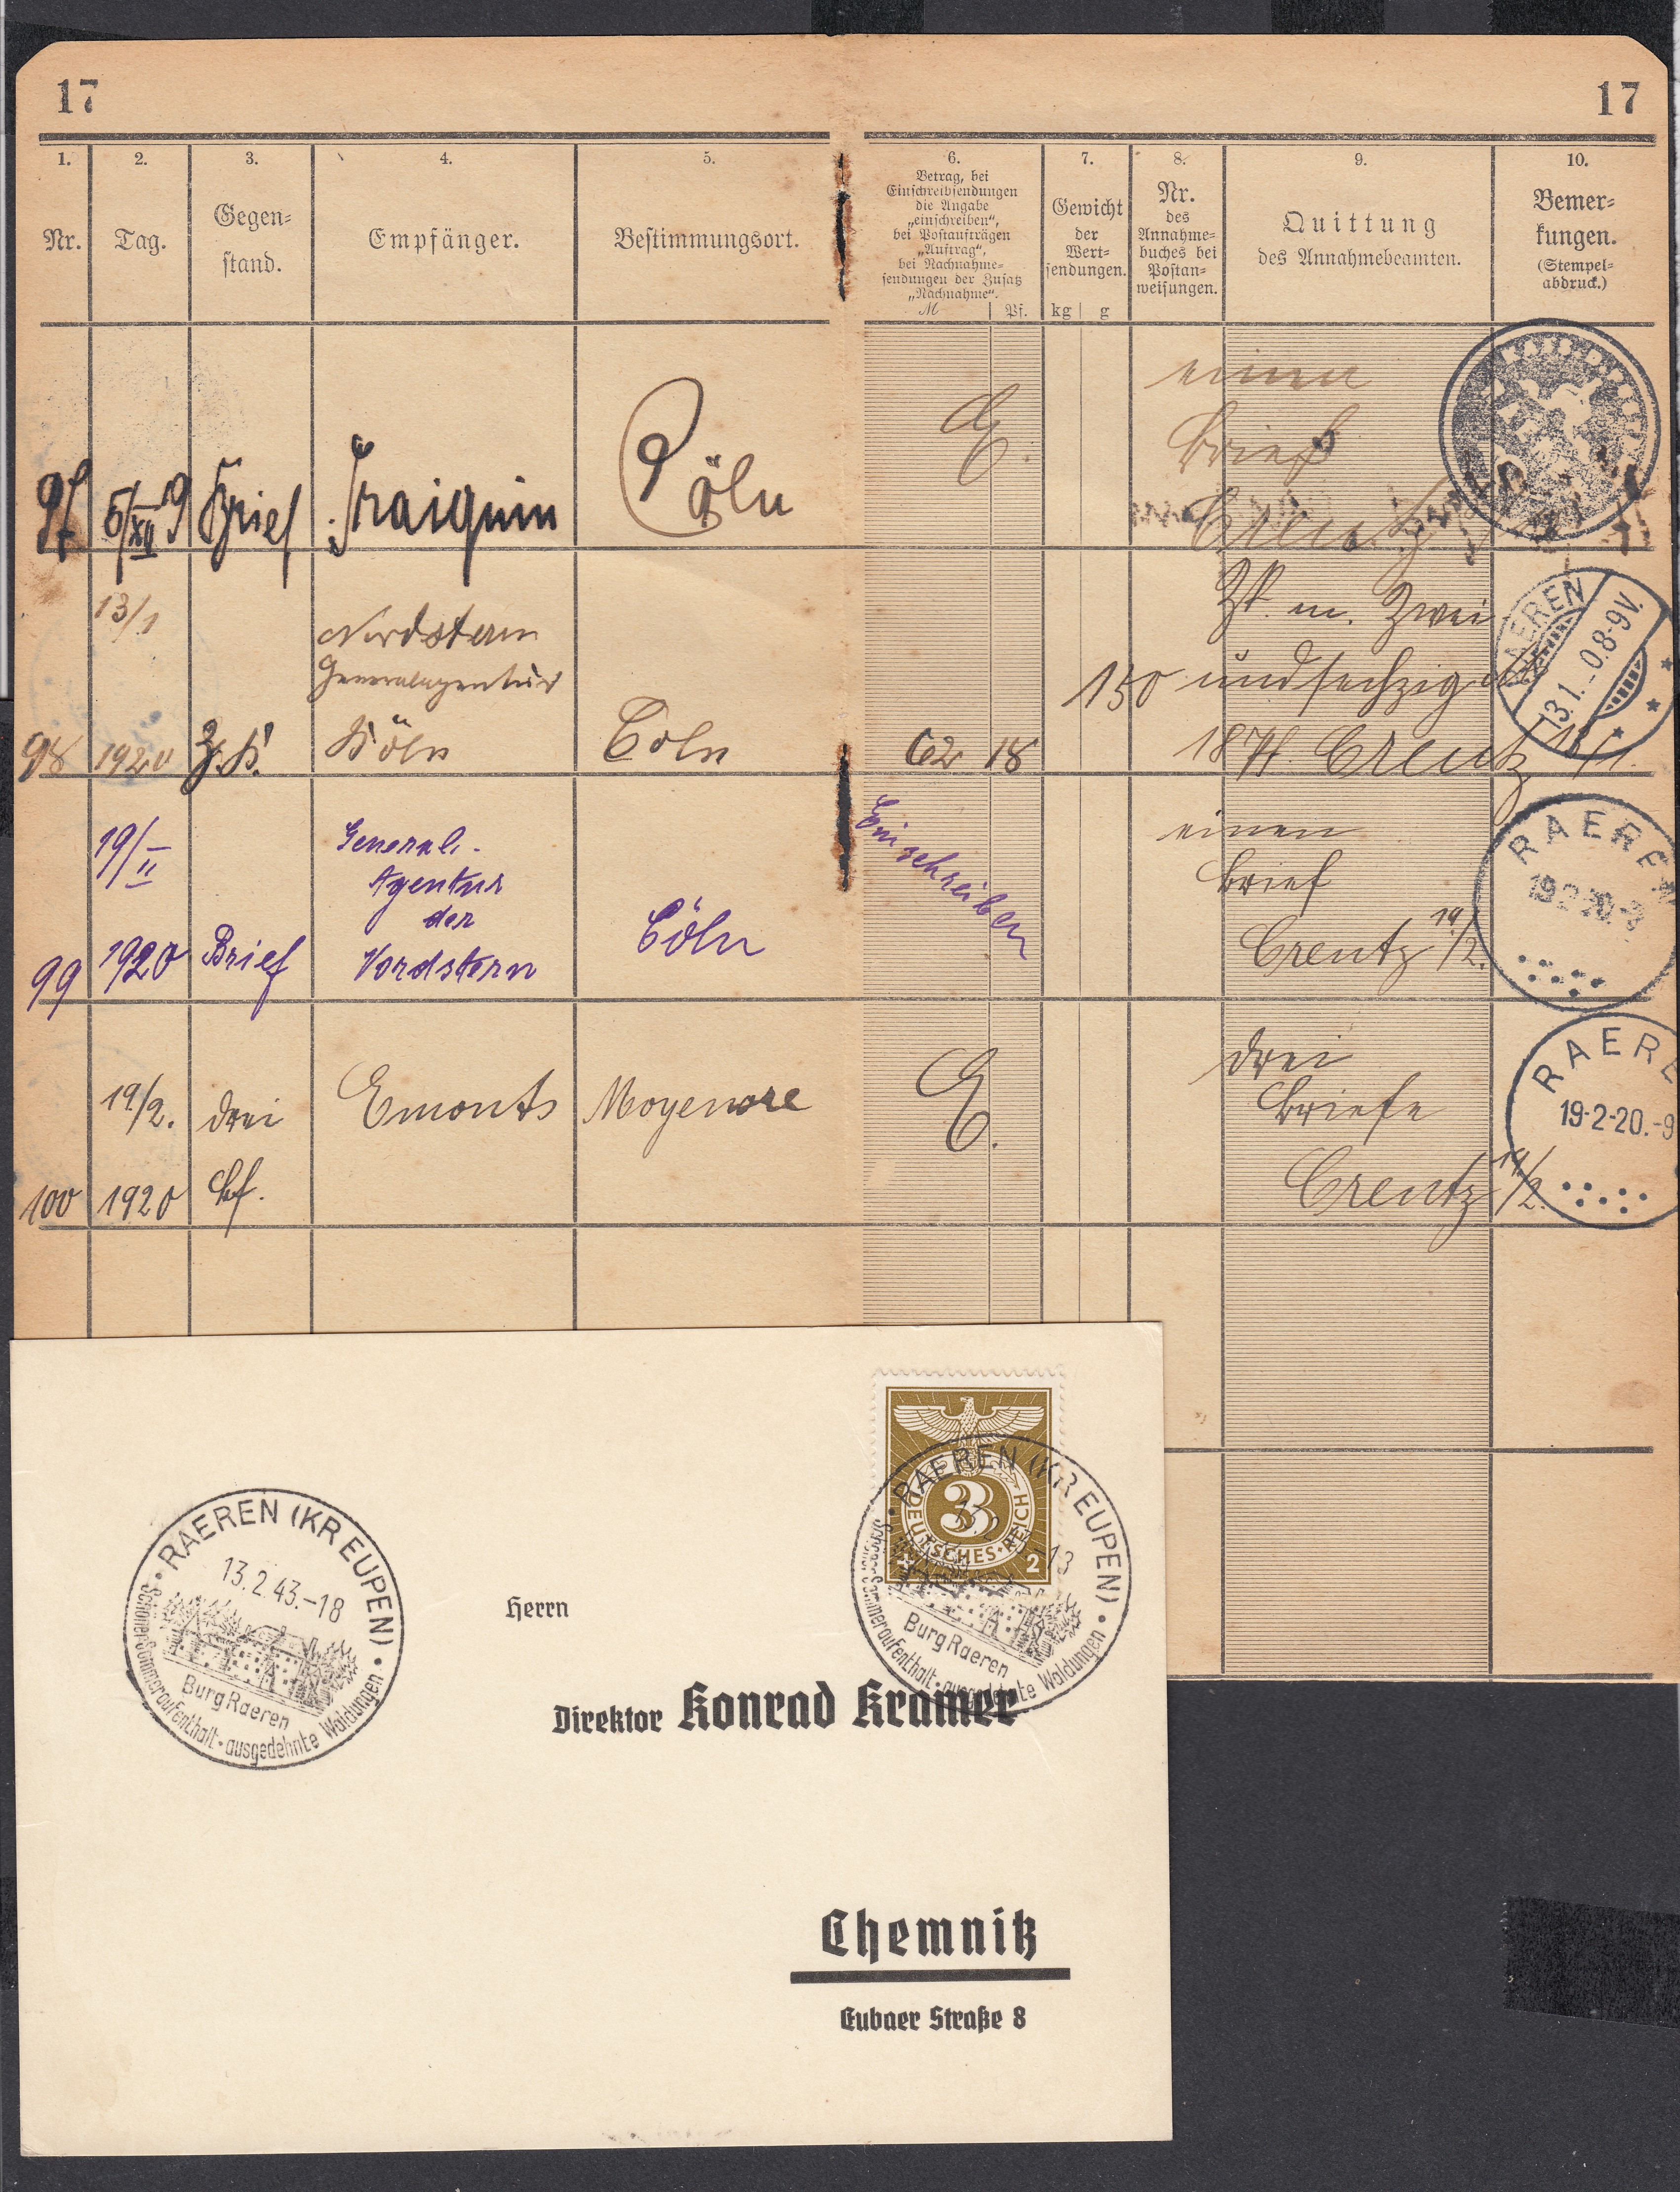 17
17
1.
2.
3.
4.
5.
6.
7.
8.
9.
10.
Nr.
Tag.
Gegen=
stand.
Empfänger.
Bestimmungsort.
Betrag, bei
Einschreibsendungen
die Angabe
„einschreiben“,
bei Postaufträgen
„Auftrag“,
bei Nachnahme=
sendungen der Zusatz
„Nachnahme“.
M
Pf.
Gewicht
der
Wert=
sendungen.
kg
g
Nr.
des
Annahme=
buches bei
Postan=
weisungen.
Quittung
des Annahmebeamten.
Bemer=
kungen.
(Stempel=
abdruck.)
Brief
Cöln
E.
einen
Brief
Creutz
13/1
Nordstern
Generalagentur
98
1920
Köln
Cöln
62
18
150
Zk. m. Zwei
undsechzig M
18 Pf. Creutz 13/1.
RAEREN
13.1._0.8-9V.
19/II
General-
Agentur
der
99
1920
Brief
Nordstern
Cöln
Einschreiben
einen
Brief
Creutz 19/2.
RAEREN
19.2.20.-9
19/2.
drei
Emonts
Moyenvre
E.
drei
Briefe
100
1920
Bf.
Creutz 19/2.
RAERE
19-2-20.-9
RAEREN (KR EUPEN)
13.2.43.-18
Burg Raeren
Schöner Sommeraufenthalt · ausgedehnte Waldungen
3
DEUTSCHES · REICH
+ 2
RAEREN (KR EUPEN)
Burg Raeren
Schöner Sommeraufenthalt · ausgedehnte Waldungen
Herrn
Direktor Konrad Kramer
Chemnitz
Eubaer Straße 8